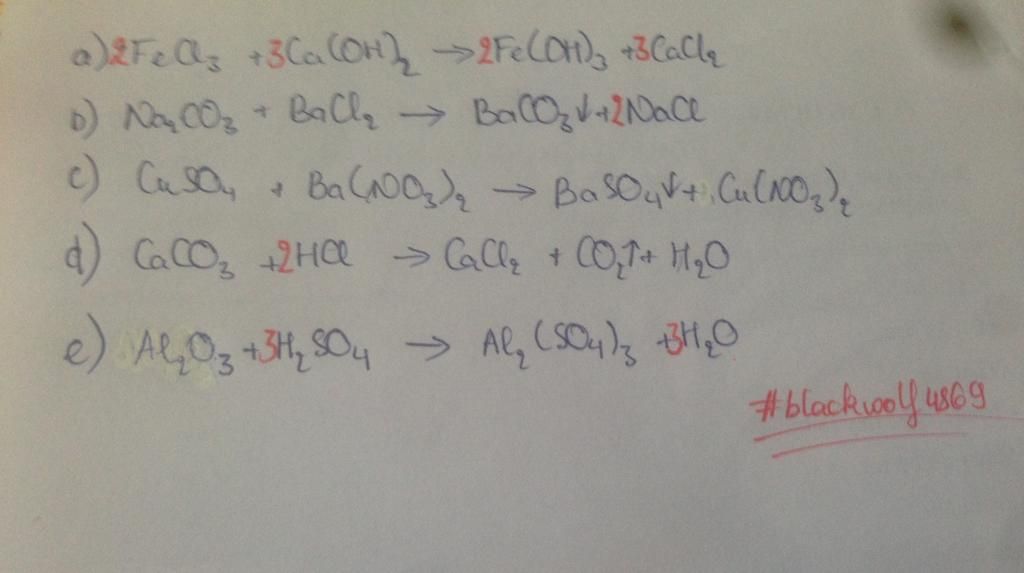 a) 2FeCl₃ + 3Ca(OH)₂ → 2Fe(OH)₃ + 3CaCl₂
b) Na₂CO₃ + BaCl₂ → BaCO₃↓ + 2NaCl
c) CuSO₄ + Ba(NO₃)₂ → BaSO₄↓ + Cu(NO₃)₂
d) CaCO₃ + 2HCl → CaCl₂ + CO₂↑ + H₂O
e) Al₂O₃ + 3H₂SO₄ → Al₂(SO₄)₃ + 3H₂O
#blackwolf4869